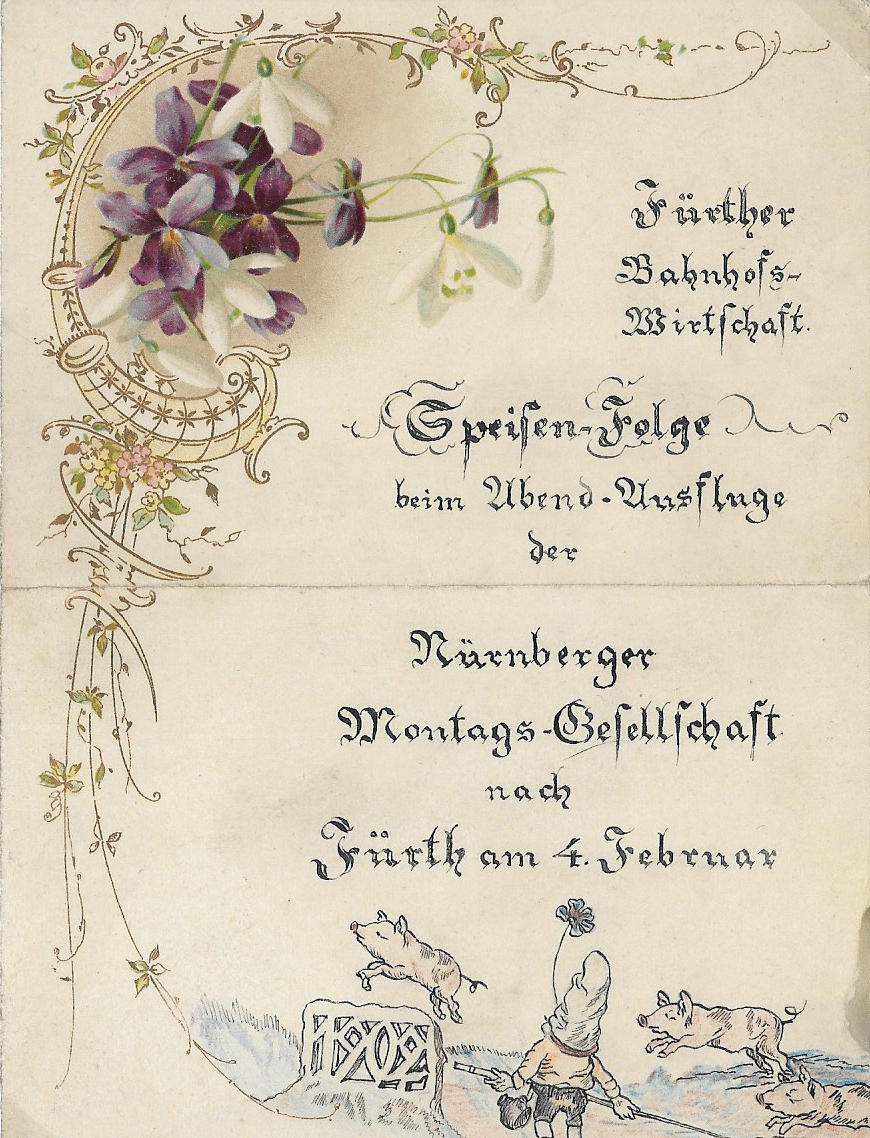 Fürther
Bahnhofs-
Wirtschaft.
Speisen-Folge
beim Abend-Ausfluge
der
Nürnberger
Montags-Gesellschaft
nach
Fürth am 4. Februar